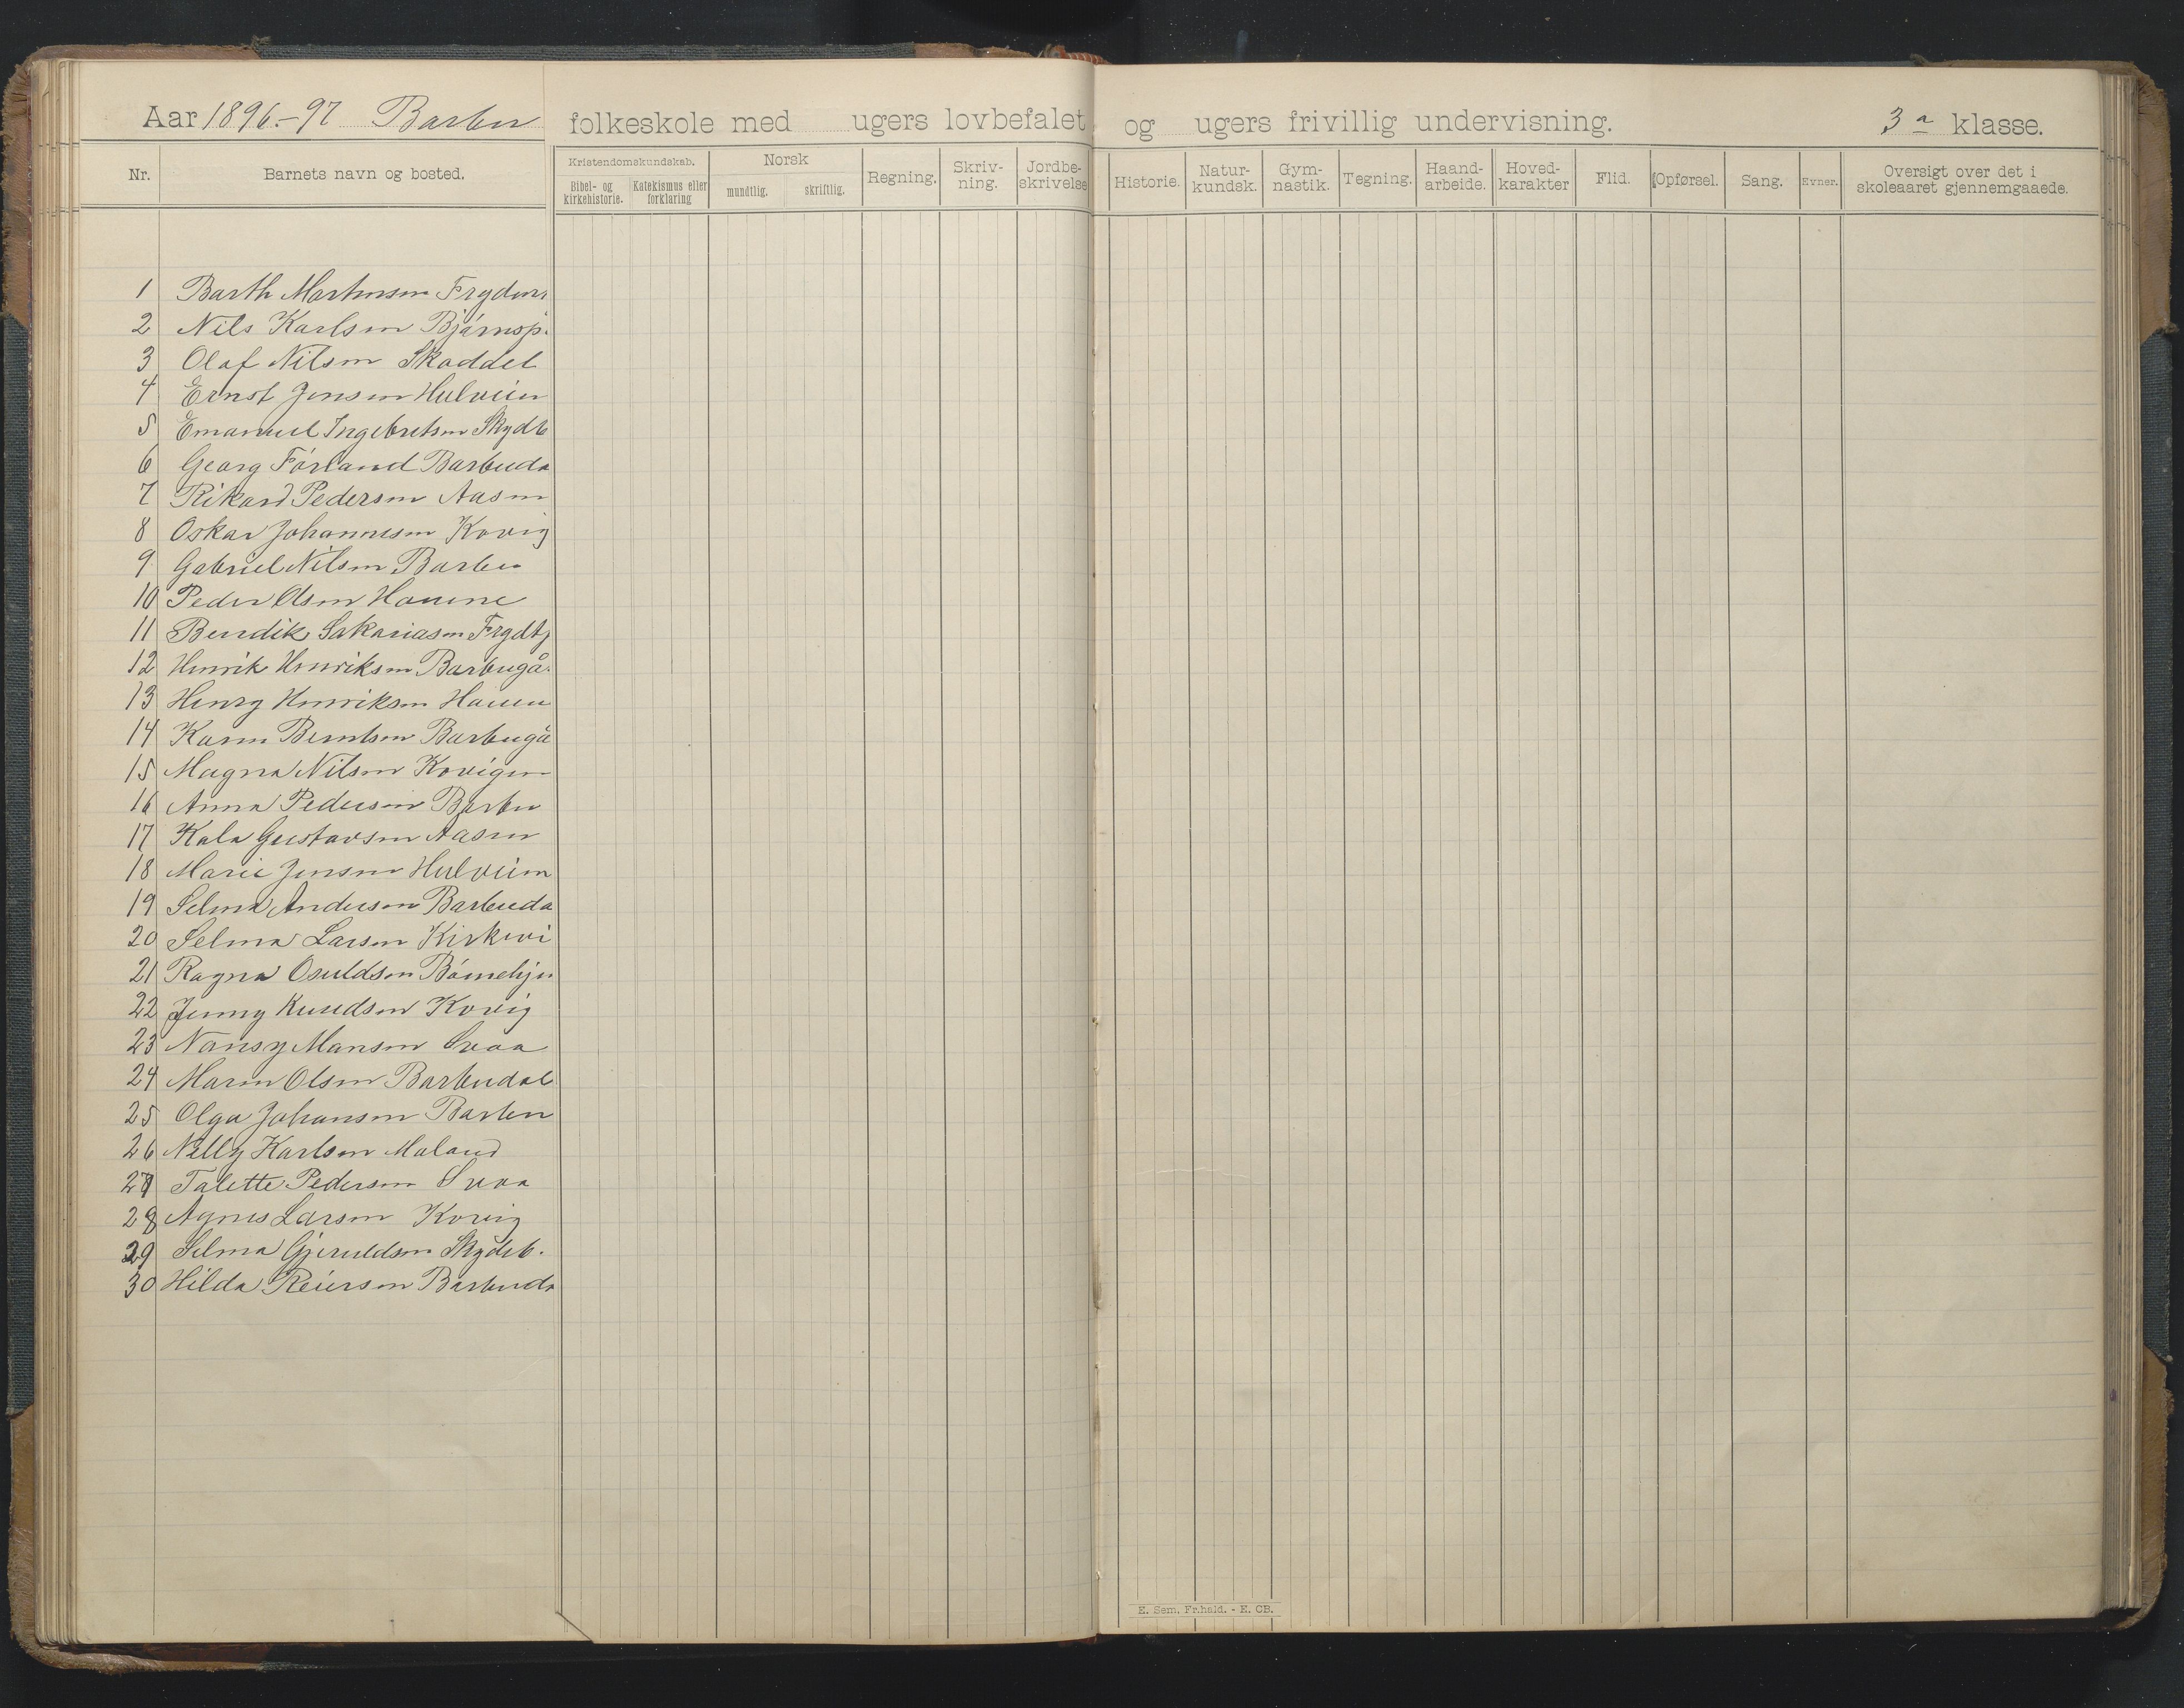 Aar 1896.-97 Barbu folkeskole med ugers lovbefalet og ugers frivillig undervisning. 3 a klasse.
Nr. Barnets navn og bosted. Kristendomskundskab. Bibel- og kirkehistorie. Katekismus eller forklaring Norsk mundtlig. skriftlig. Regning. Skriv-ning. Jordbe-skrivelse Historie. Natur-kundsk. Gym-nastik. Tegning. Haand-arbeide. Hoved-karakter Flid. Opførsel. Sang. Evner. Oversigt over det i skoleaaret gjennemgaaede.
1 Barth Martinsen Frydens
2 Nils Karlsen Bjørnsp.
3 Olaf Nilsen Skaddel
4 Ernst Jensen Hulveien
5 Emanuel Ingebretsen Skydb
6 Georg Førland Barbuda
7 Rikard Pedersen Aasen
8 Oskar Johannesen Kovig
9 Gabriel Nilsen Barbu
10 Peder Olsen Hauene
11 Bendik Sakariasen Frydtj
12 Henrik Henriksen Barbugå.
13 Henry Henriksen Hauen
14 Karen Berntsen Barbugå
15 Magna Nilsen Kovigen
16 Anna Pedersen Barbu
17 Kala Gustavsen Aasen
18 Marie Jensen Hulveien
19 Selma Andersen Barbuda
20 Selma Larsen Kirkevi
21 Ragna Osuldsen Børnehju
22 Jenny Knudsen Kovig
23 Nansy Mansen Svaa
24 Maren Olsen Barbudal
25 Olga Johansen Barbu
26 Nelly Karlsen Moland
27 Talette Pedersen Svaa
28 Agnes Larsen Kovig
29 Selma Gjeruldsen Skydeb.
30 Hilda Reiersen Barbuda
E. Sem, Fr.hald. - E. CB.